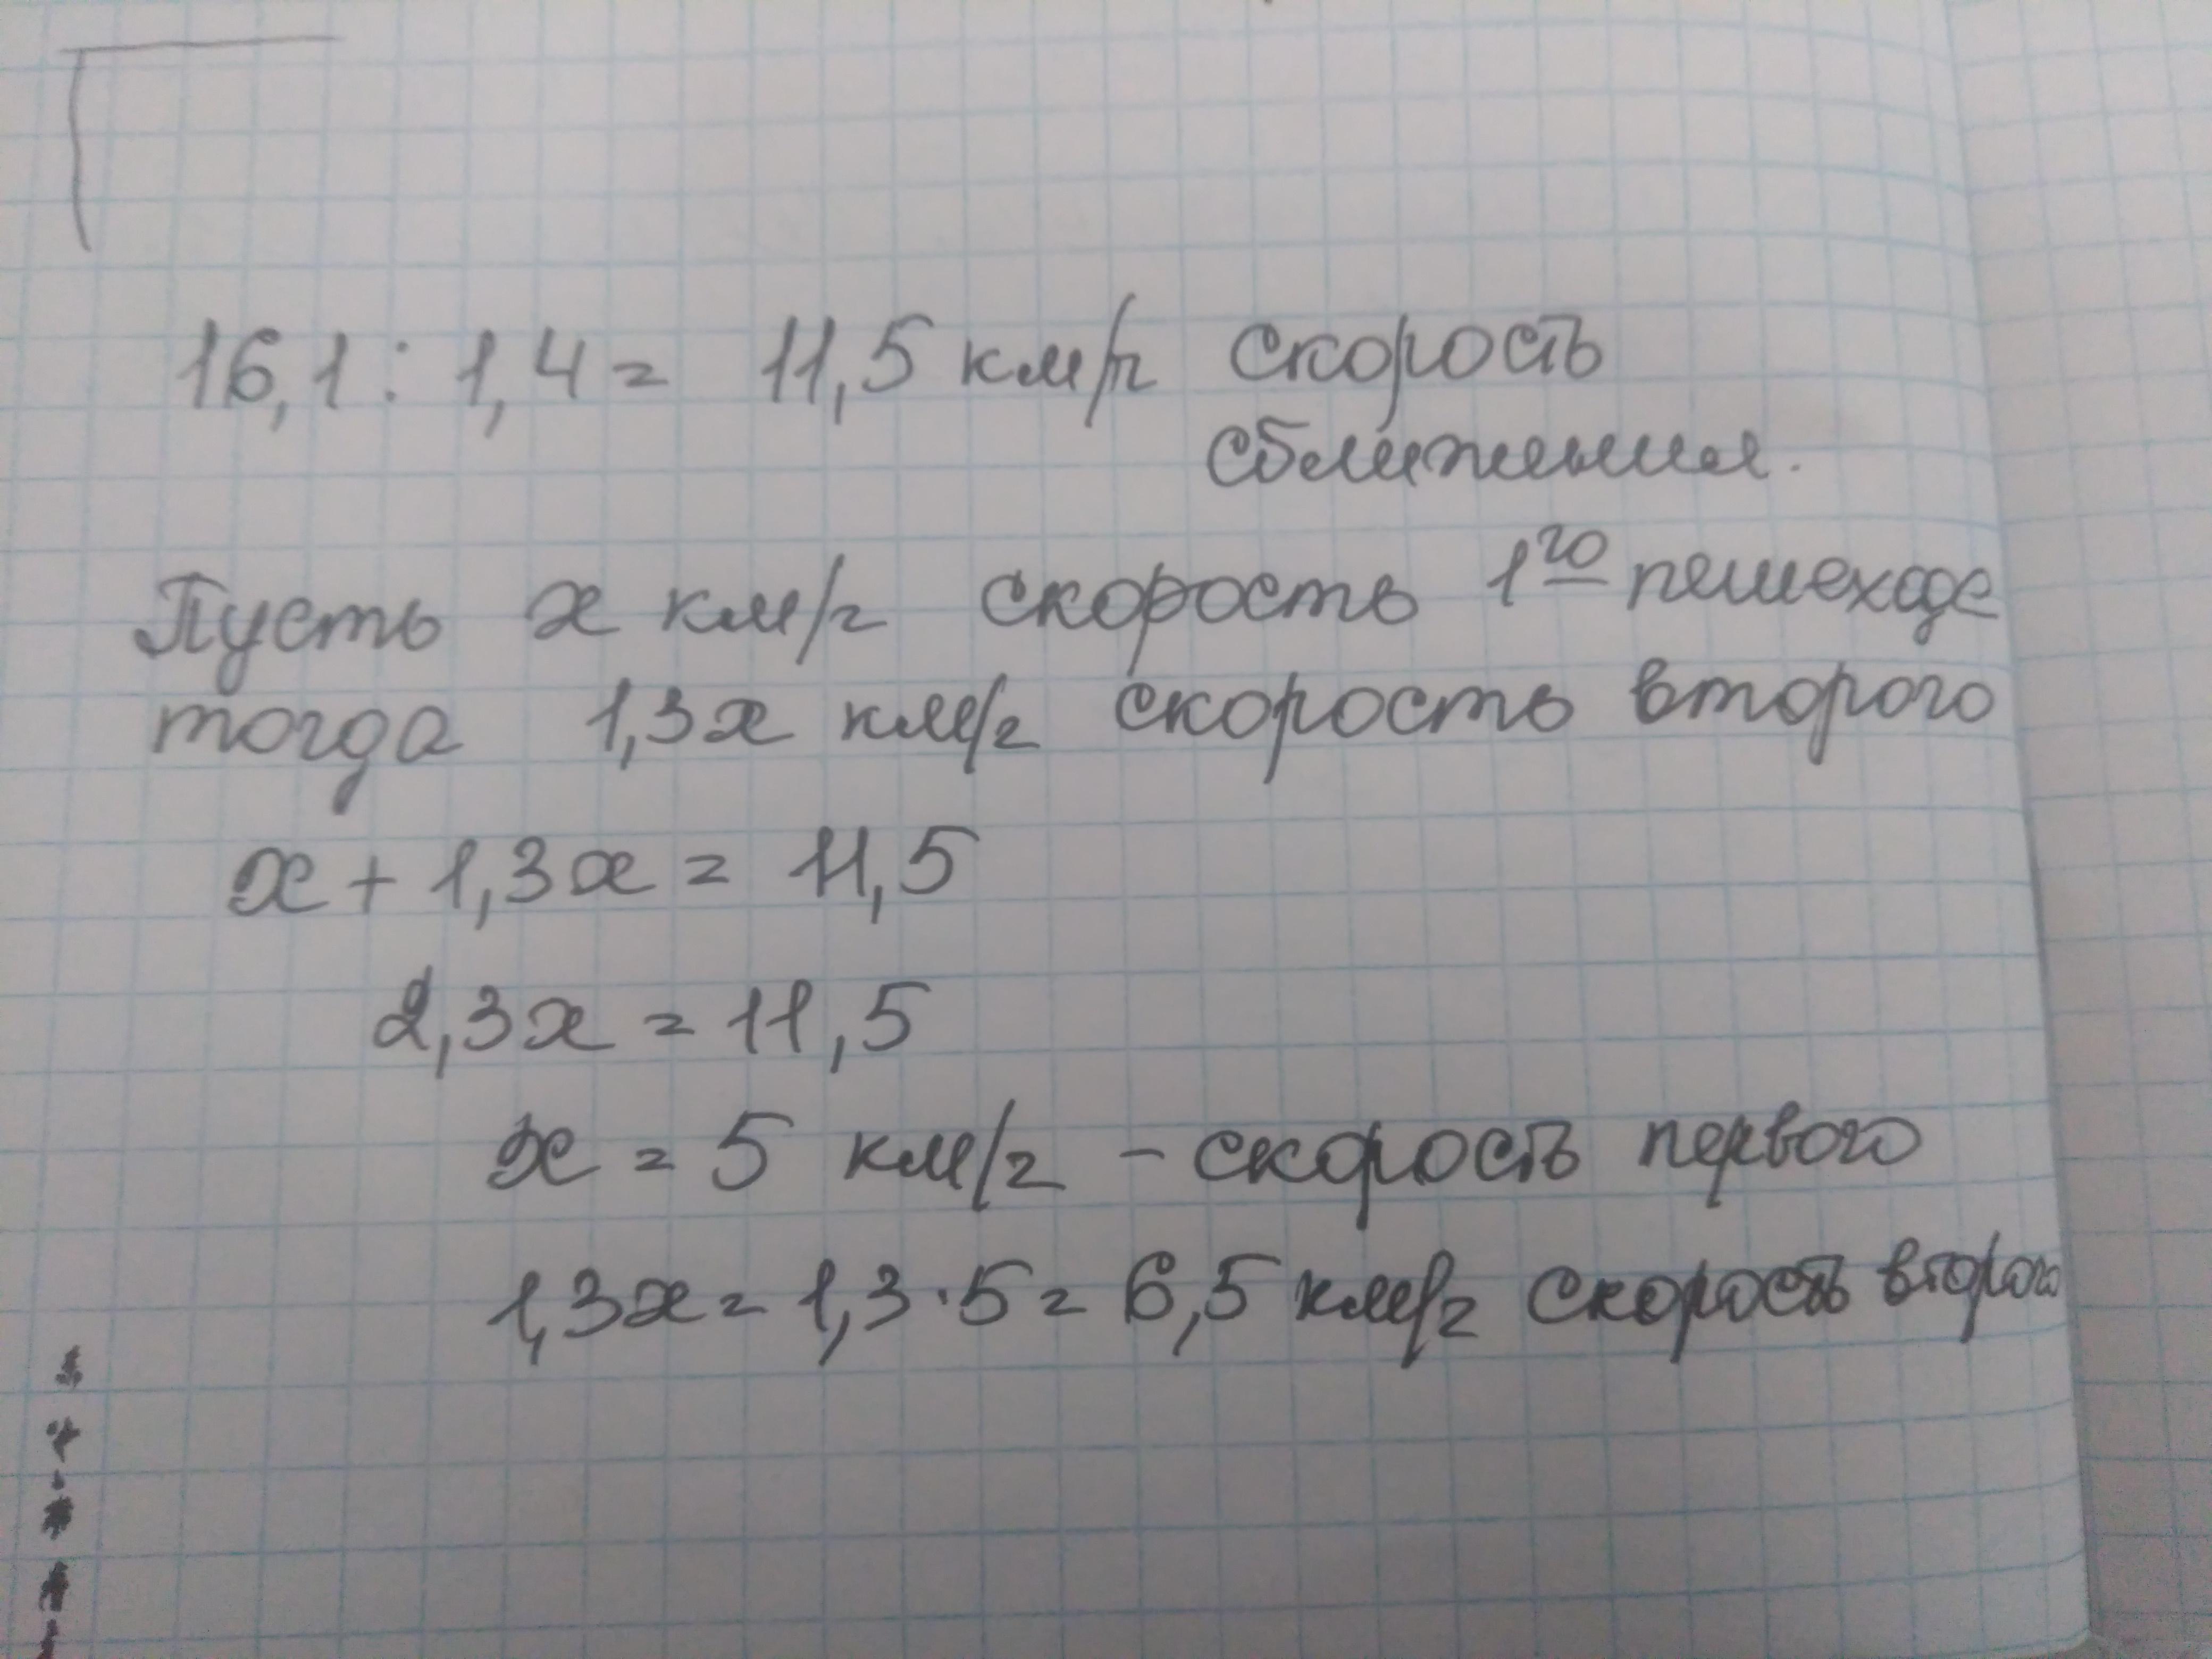 16,1 : 1,4 = 11,5 км/ч скорость
сближения.
Пусть х км/ч скорость 1го пешехода
тогда 1,3х км/ч скорость второго
х + 1,3х = 11,5
2,3х = 11,5
х = 5 км/ч – скорость первого
1,3х = 1,3 · 5 = 6,5 км/ч скорость второго